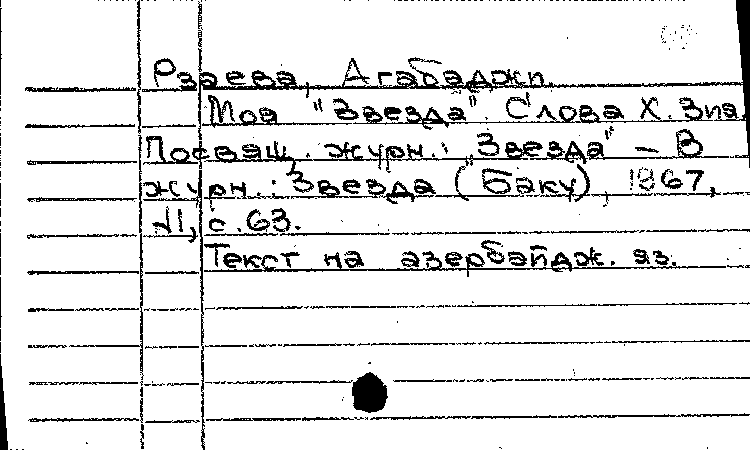 Рзаева, Агабаджи.
Моя "Звезда". Слова Х. Зия.
Посвящ. журн.: "Звезда" – В
журн.: Звезда (Баку), 1967,
№1, с. 63.
Текст на азербайдж. яз.